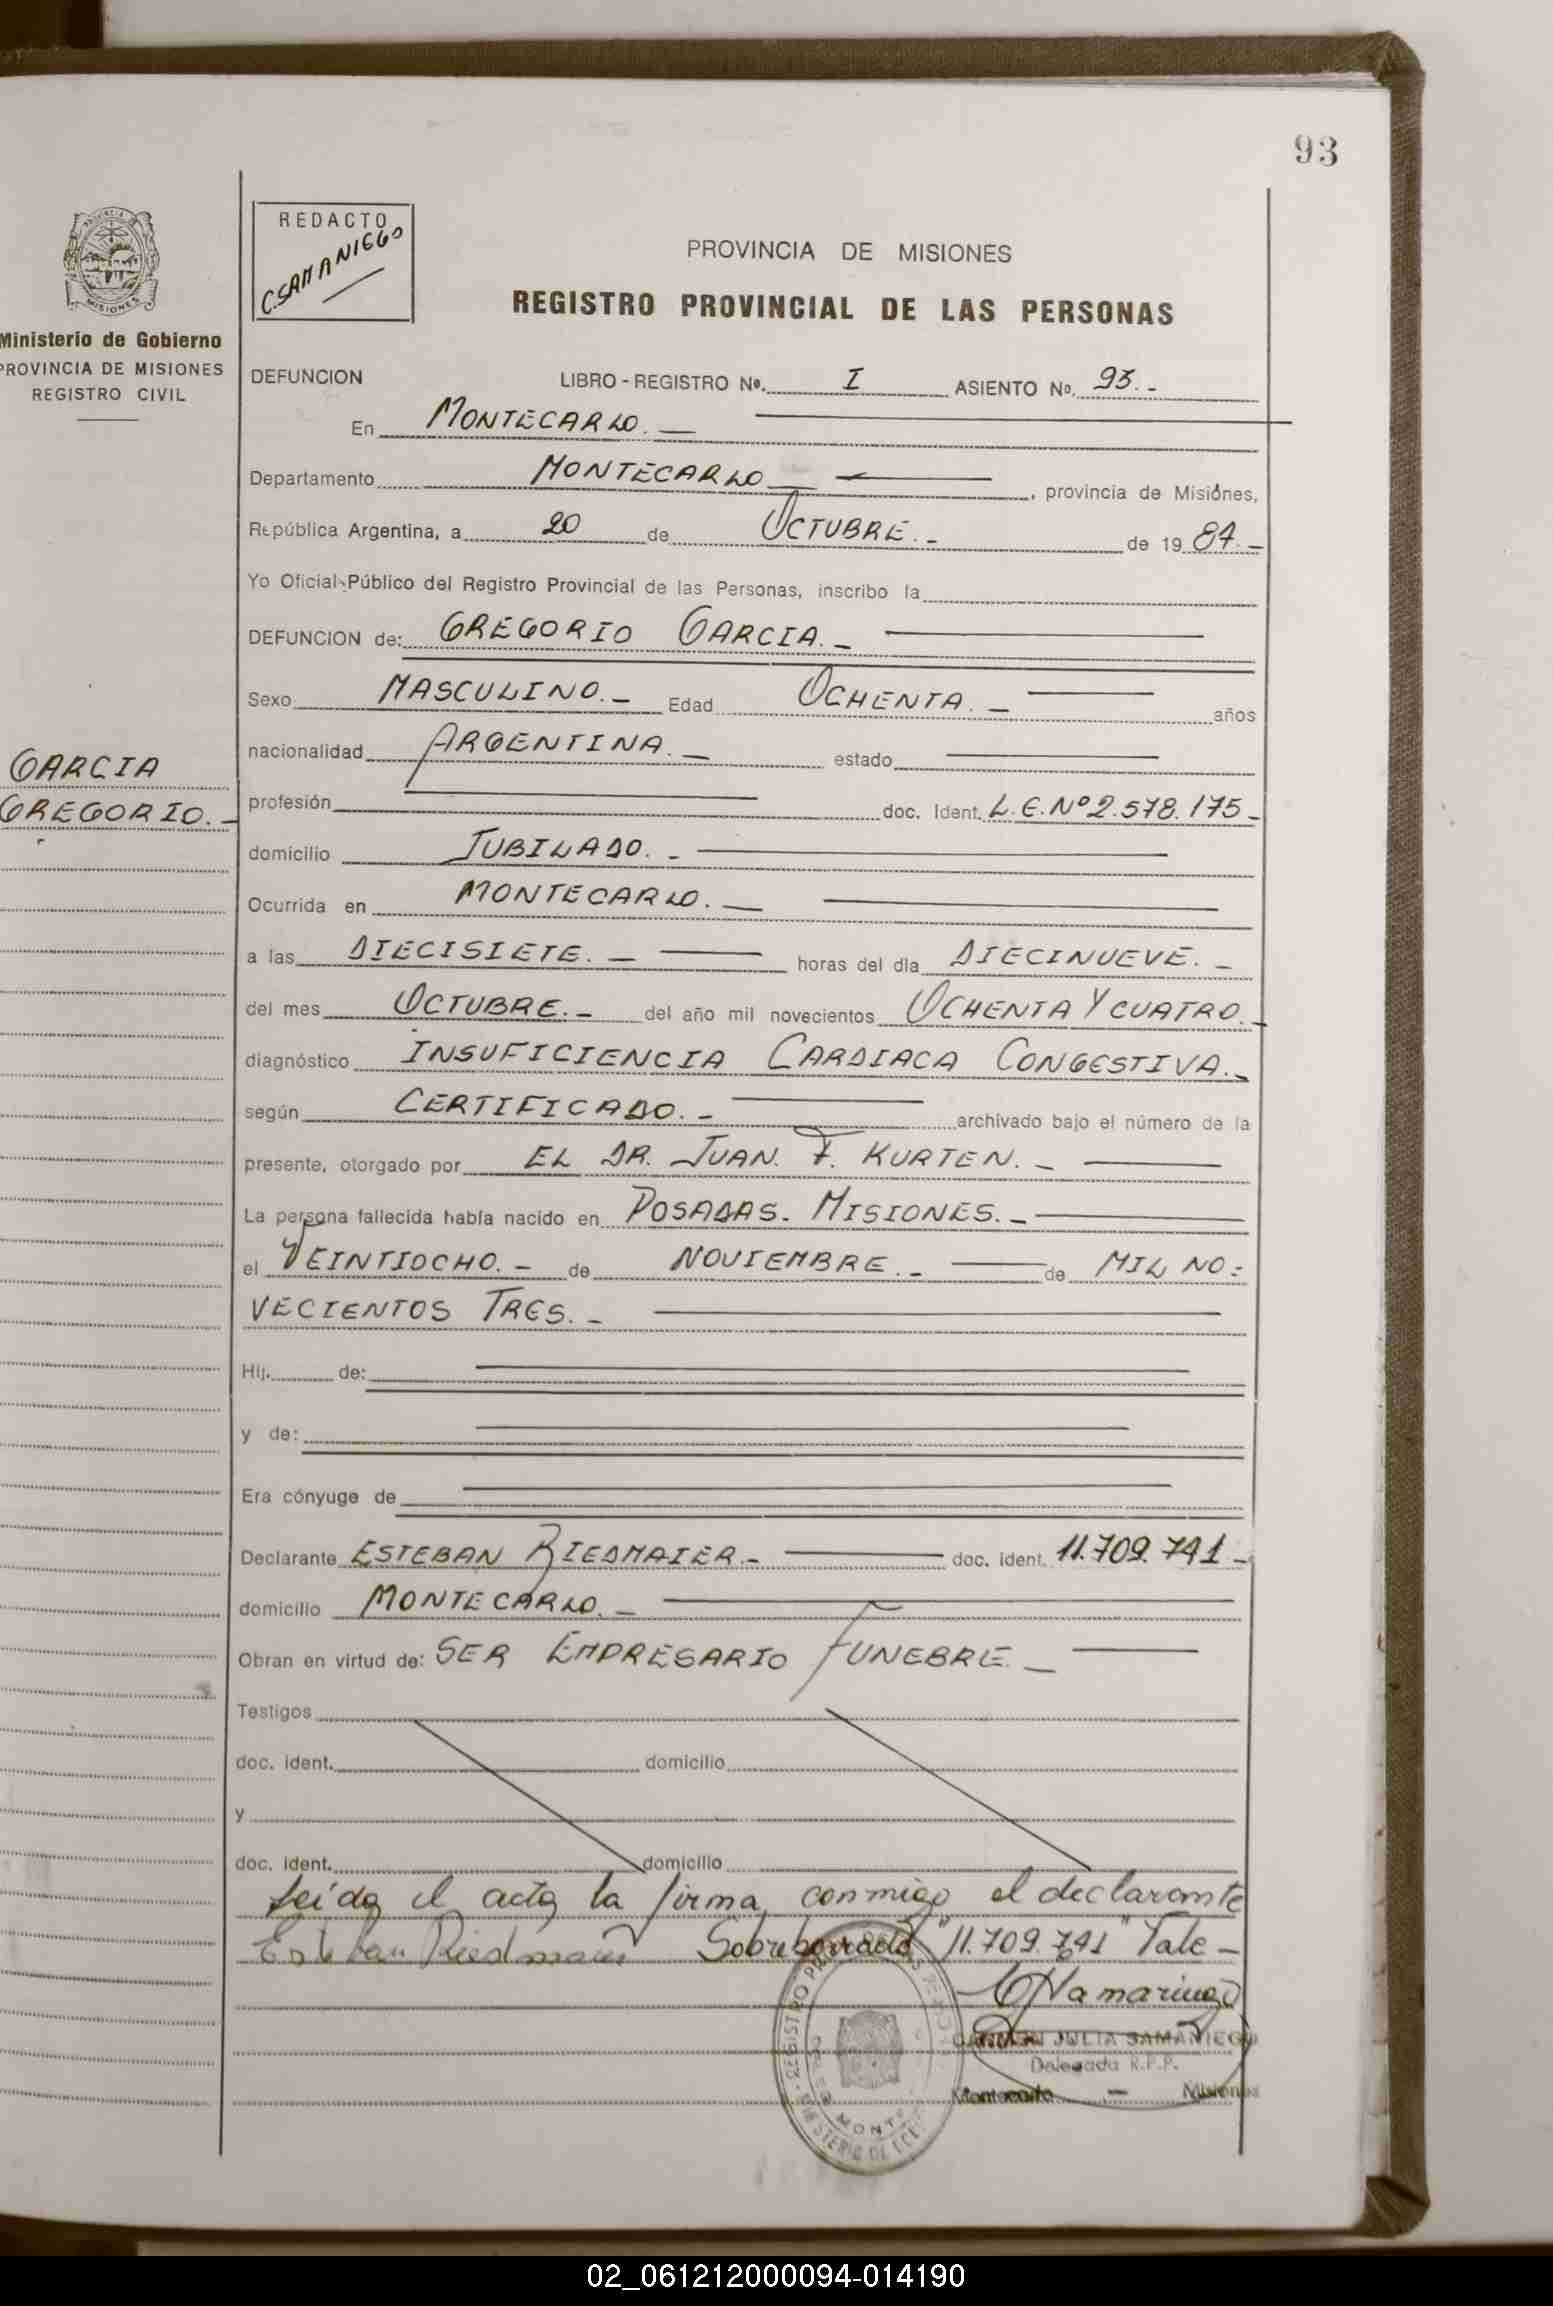 93
REDACTO
C. SAMANIEGO
PROVINCIA DE MISIONES
REGISTRO PROVINCIAL DE LAS PERSONAS
MISIONES
Ministerio de Gobierno
PROVINCIA DE MISIONES
REGISTRO CIVIL
DEFUNCION LIBRO - REGISTRO Nº. I ASIENTO Nº. 93.-
En MONTECARLO.-
Departamento MONTECARLO , provincia de Misiones,
República Argentina, a 20 de OCTUBRE.- de 19 84.-
Yo Oficial Público del Registro Provincial de las Personas, inscribo la
DEFUNCION de: GREGORIO GARCIA.-
Sexo MASCULINO.- Edad OCHENTA.- años
nacionalidad ARGENTINA.- estado
GARCIA
GREGORIO.-
profesión doc. Ident. L.E.Nº 2.578.175-
domicilio JUBILADO.-
Ocurrida en MONTECARLO.-
a las DIECISIETE.- horas del día DIECINUEVE.-
del mes OCTUBRE.- del año mil novecientos OCHENTA Y CUATRO.-
diagnóstico INSUFICIENCIA CARDIACA CONGESTIVA.-
según CERTIFICADO.- archivado bajo el número de la
presente, otorgado por EL DR. JUAN. F. KURTEN.-
La persona fallecida había nacido en POSADAS. MISIONES.-
el VEINTIOCHO.- de NOVIEMBRE.- de MIL NO=
VECIENTOS TRES.-
Hij. de:
y de:
Era cónyuge de
Declarante ESTEBAN RIEDMAIER.- doc. ident. 11.709.741-
domicilio MONTECARLO.-
Obran en virtud de: SER EMPRESARIO FUNEBRE.-
Testigos
doc. ident. domicilio
y
doc. ident. domicilio
Leida el acta la firma, conmigo el declarante
Esteban Riedmaier Sobreborrado "11.709.741" Vale-
CSamaniego
CARMEN JULIA SAMANIEGO
Delegada R.P.P.
Montecarlo - Misiones
02_061212000094-014190